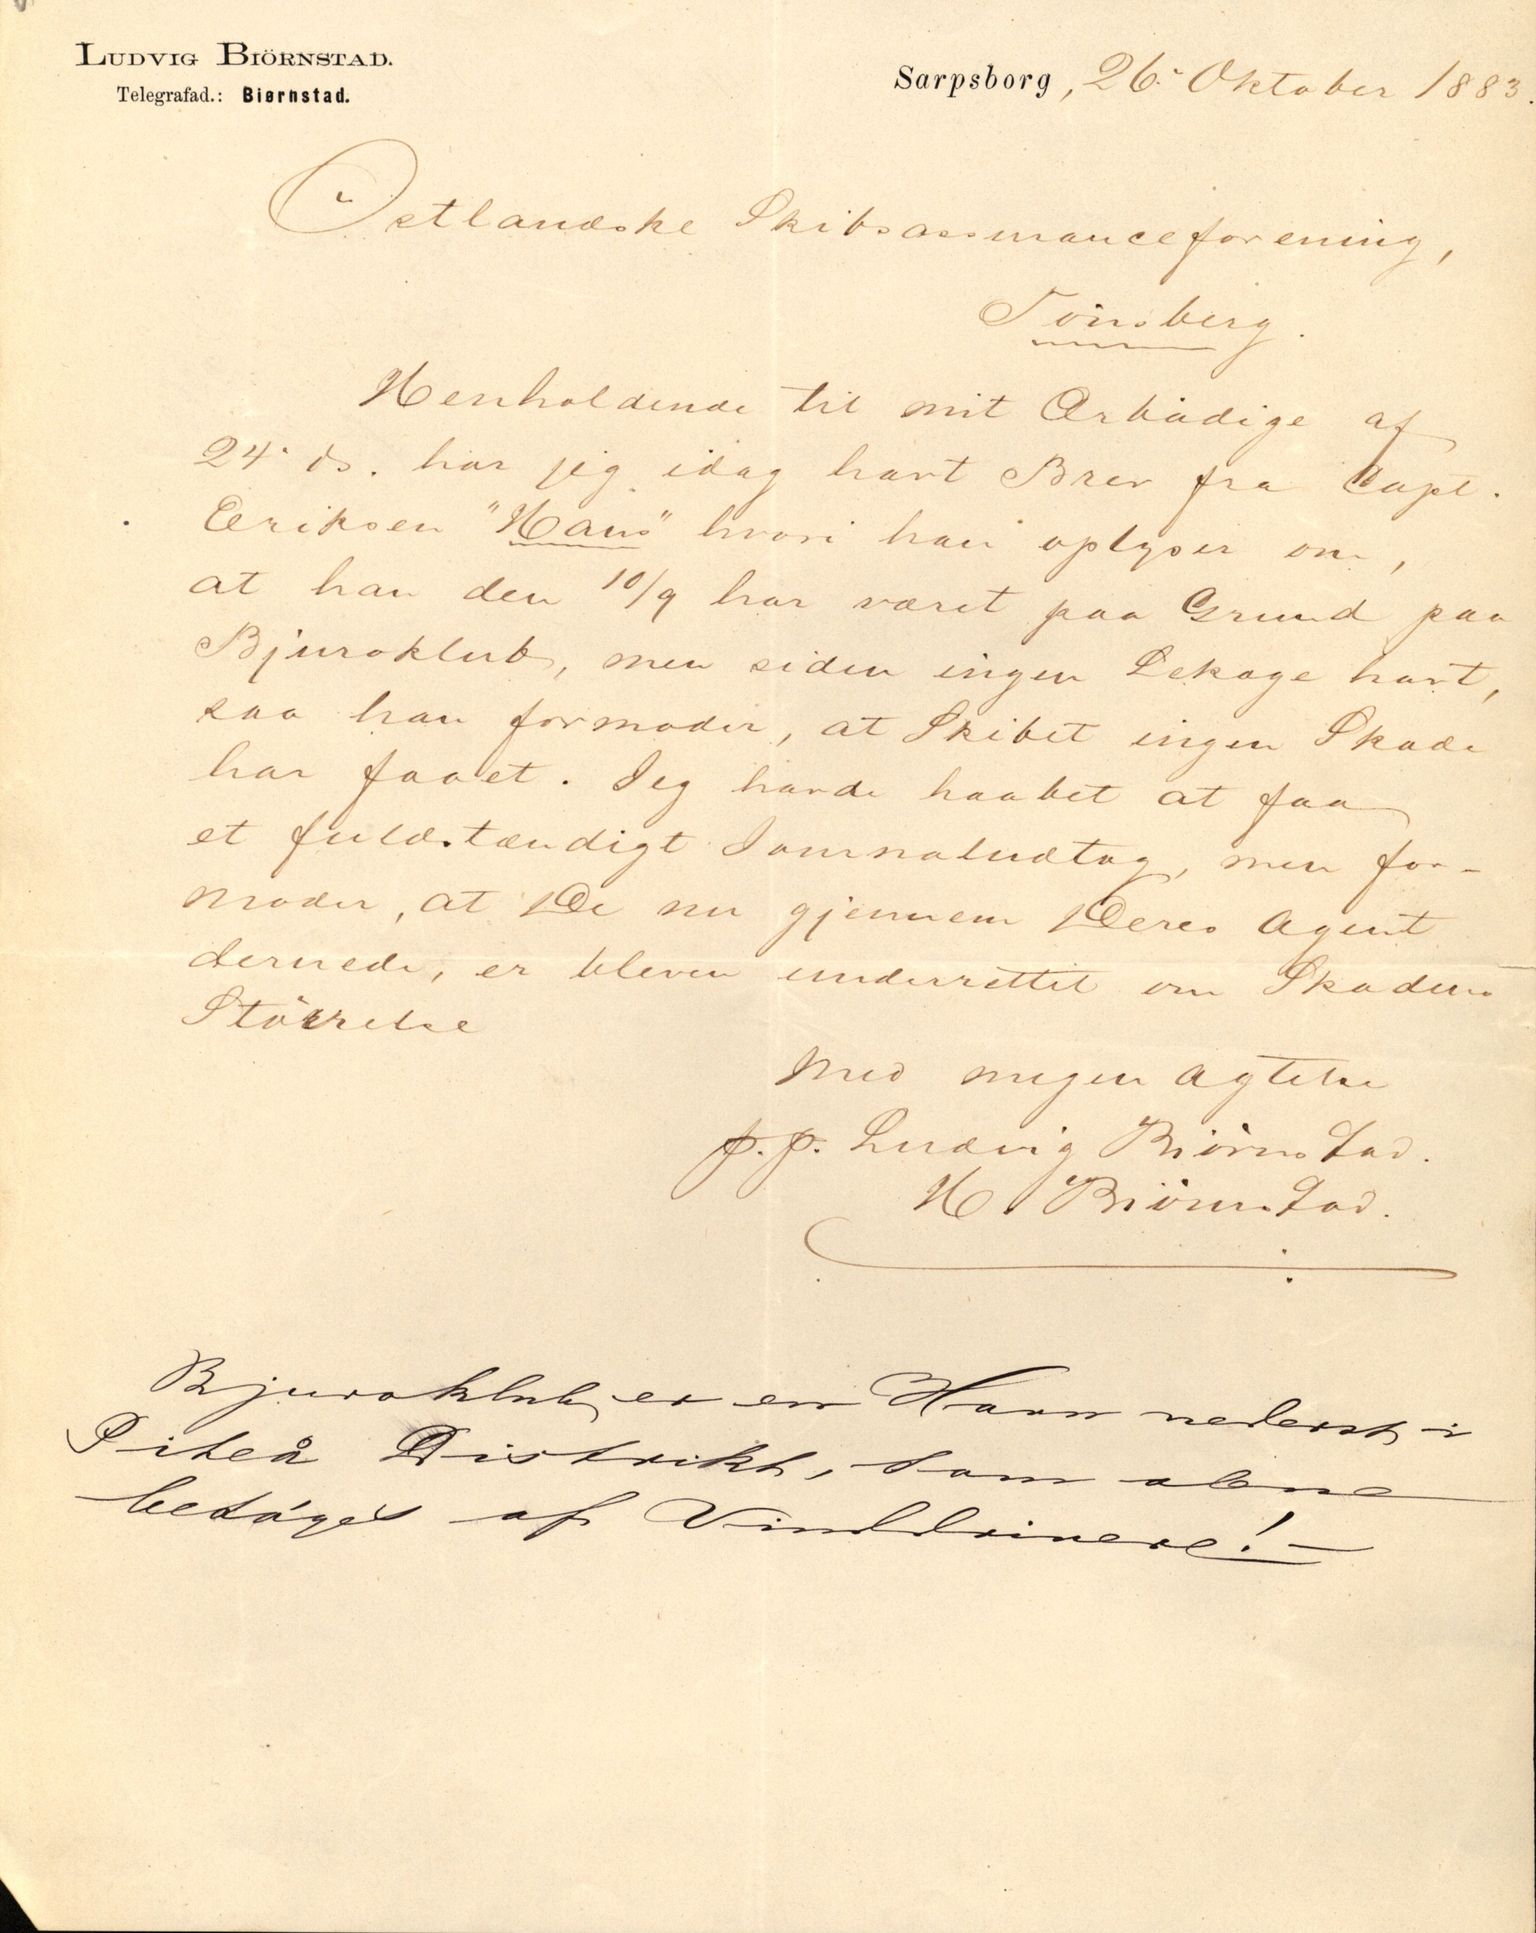 LUDVIG BIÖRNSTAD.
Telegrafad.: Biørnstad.
Sarpsborg, 26. Oktober 1883.
Östlandske Skibsassuranceforening,
Tönsberg.
Henholdende til mit Ærbödige af
24. ds. har jeg idag havt Brev fra Capt.
Eriksen "Hans" hvori han oplyser om,
at han den 10/9 har været paa Grund paa
Bjuroklub, men siden ingen Lekage havt,
saa han formoder, at Skibet ingen Skade
har faaet. Jeg havde haabet at faa
et fuldstændigt Journaludtog, men for-
moder, at De nu gjennem Deres Agent
dernede, er bleven underrettet om Skadens
Störrelse
Med megen Agtelse
p.p. Ludvig Biörnstad.
H. Biörnstad.
Bjuroklub er en Havn nederst i
Piteå Distrikt, som alene
besöges af Vinddrivere! —